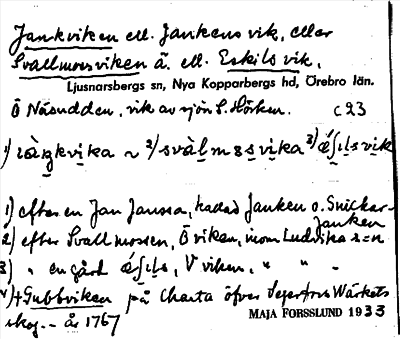 Jankviken ell. Jankens vik, eller
Svallmossviken ä. ell. Eskils vik,
Ljusnarsbergs sn, Nya Kopparbergs hd, Örebro län.
Ö Näsudden, vik av sjön S. Hörken. C23
1) 2) svàlmssvika 3)
1) efter en Jan Jansa, kallad Janken o. Snickar-
Janken
2) efter Svallmossen, Ö viken, inom Ludvika sn
3) " en gård V viken, " " "
4) + Gubbviken på Charta öfver Wärkets
skog.- år 1767
MAJA FORSSLUND 1933